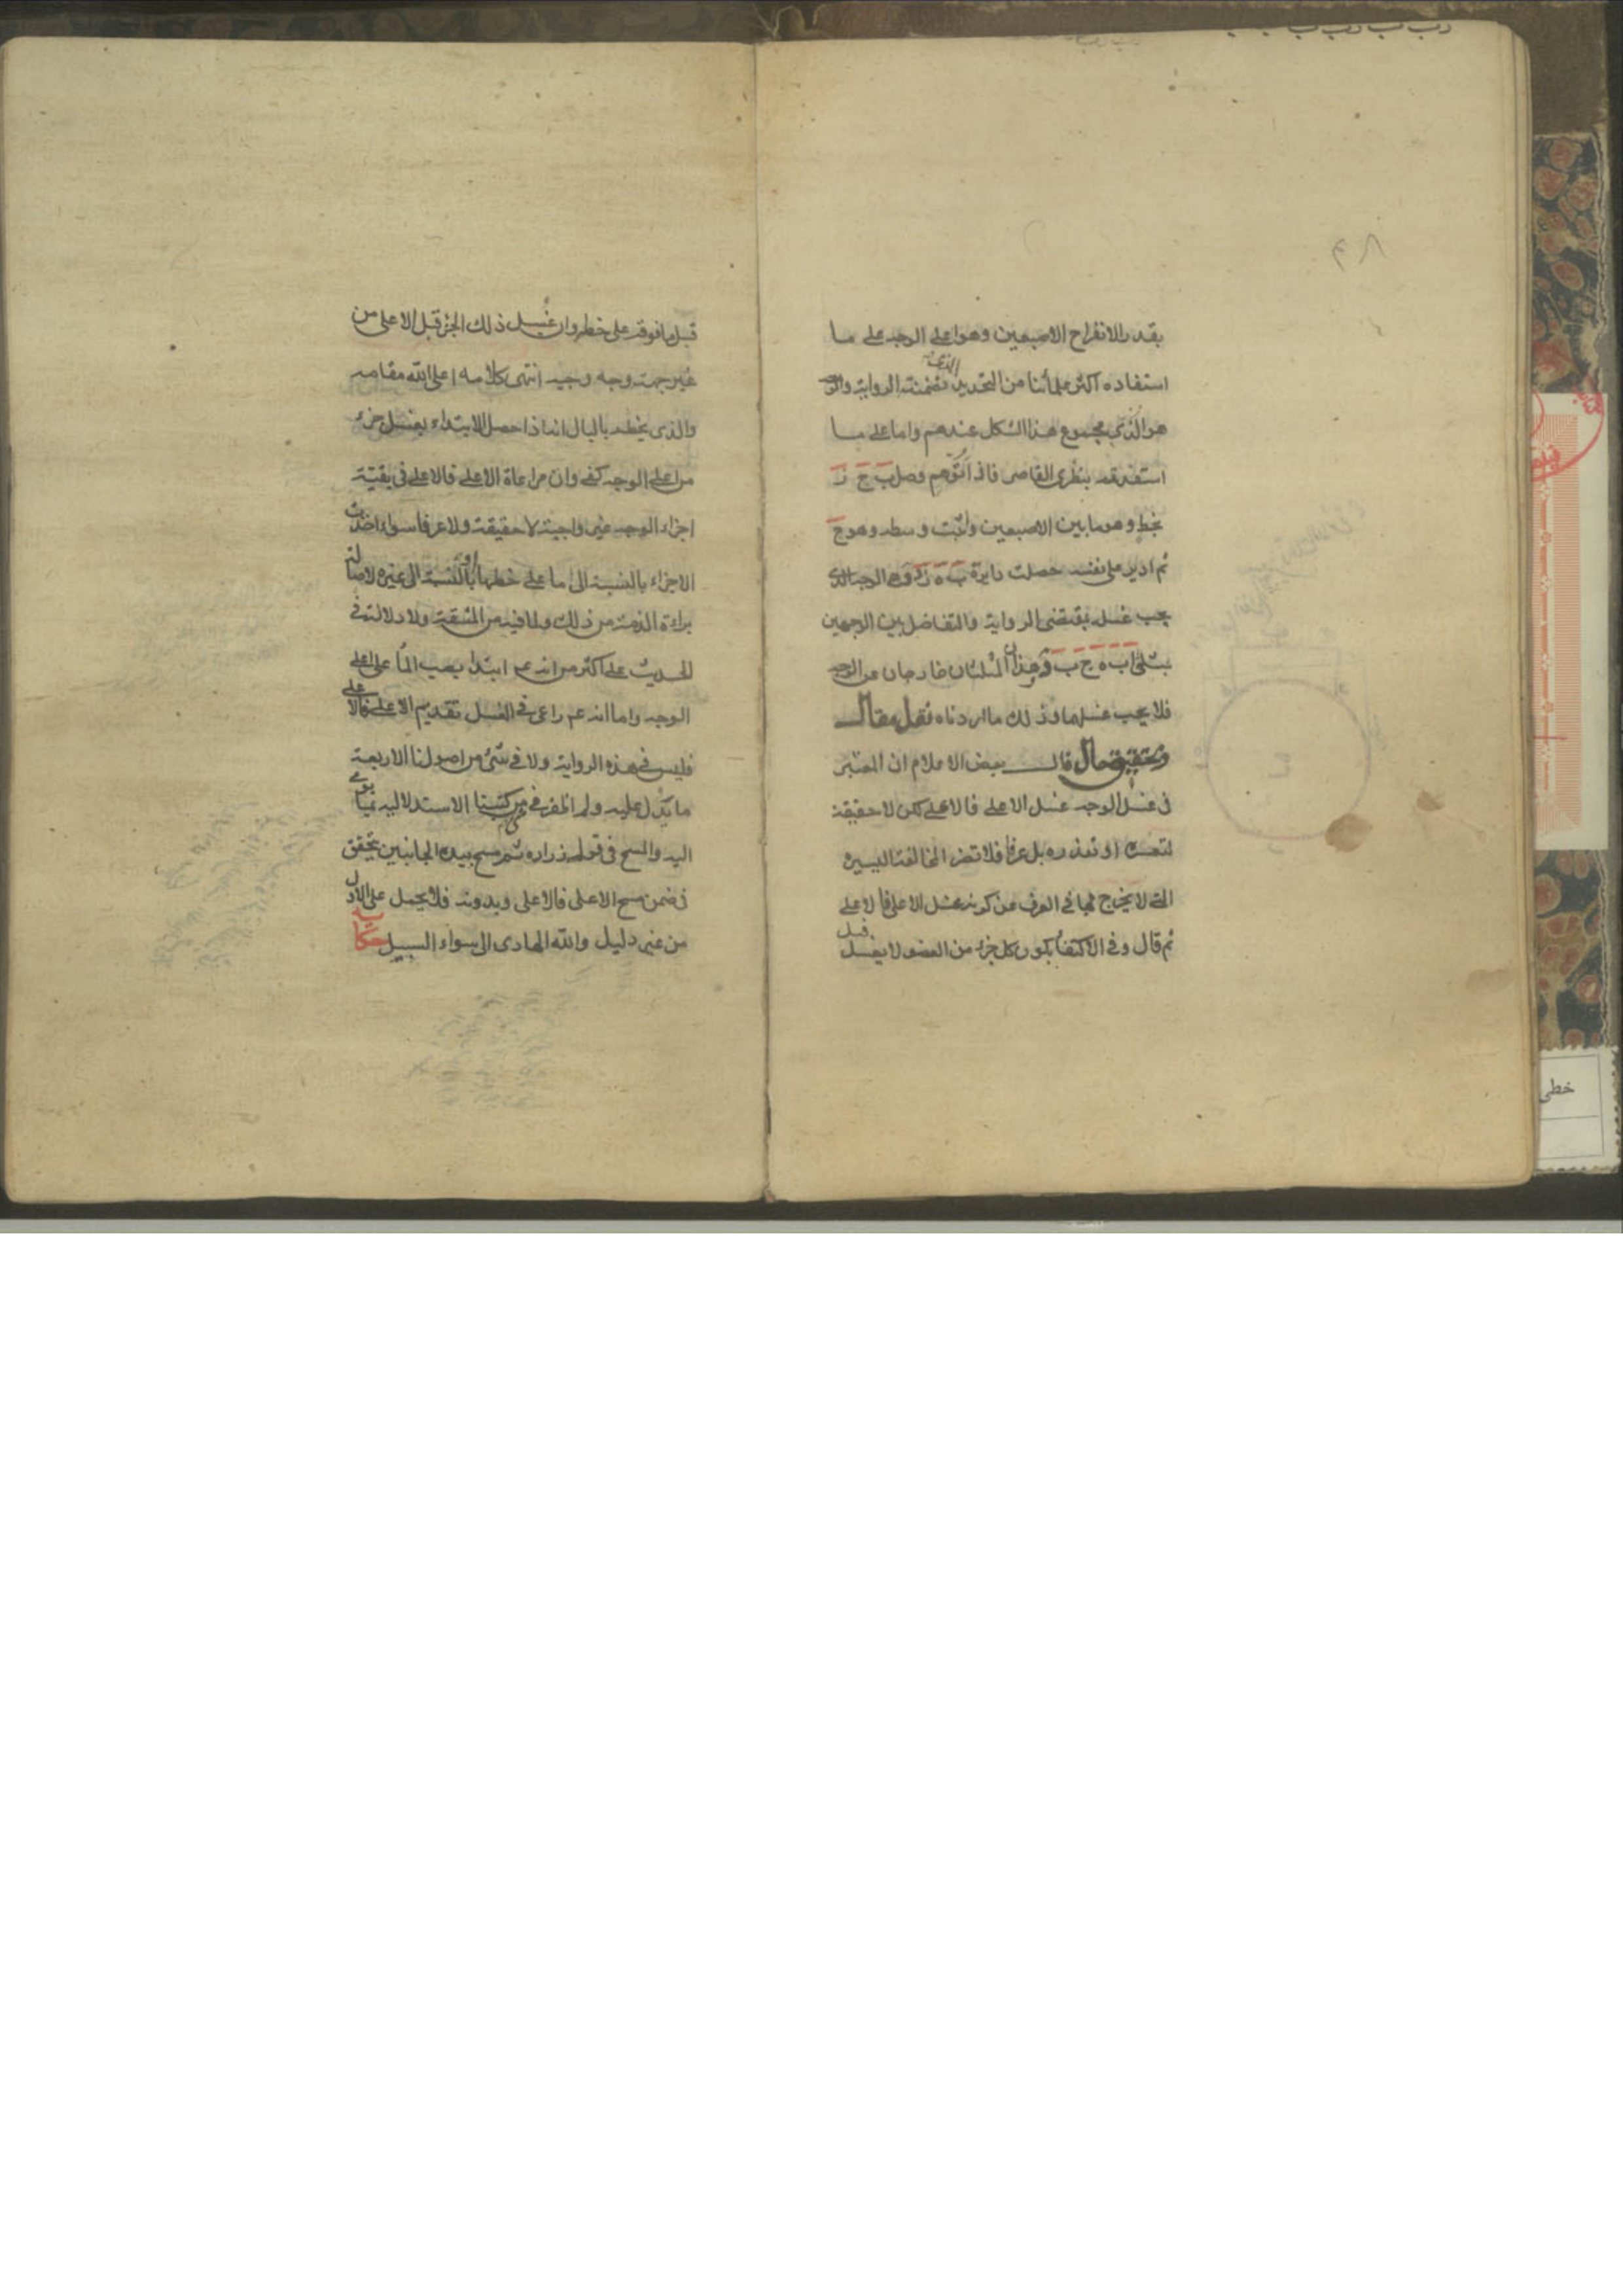 بقدر الانفراج الاصبعين وهو اعلى الوجه على ما
استفاده اكثر علمائنا من التحديد الذى تضمنته الرواية والوجه
هو الذى مجموع هذا الشكل عندهم واما على ما
استفدته بنظرى القاصر فاذا توهم وصل ب ج
بخط وهو ما بين الاصبعين واثبت وسطه وهو ج
ثم ادير على نفسه حصلت دايرة ب ه وهى الوجه الذى
يجب غسله بمقتضى الرواية والتفاضل بين الوجهين
بمثلثى ا ب ه ج ب و وهذان المثلثان خارجان عن الوجه
فلا يجب غسلهما وذلك ما اردناه نقل مقال
وتحقيق حال قال بعض الاعلام ان المعتبر
فى غسل الوجه غسل الاعلى فالاعلى لكن لا حقيقة
لتعسره او تعذره بل عرفا فلا تضر المخالفة اليسيرة
التى لا يخرج بها فى العرف عن كونه غسل الاعلى فالاعلى
ثم قال وفى الاكتفاء بكون كل جزء من العضو لا يغسل قبل
قبل ما فوقه على خطه وان غسل ذلك الجزء قبل الاعلى من
غير جهته وجه وجيه انتهى كلامه اعلى الله مقامه
والذى يخطر بالبال انه اذا حصل الابتداء بغسل جزء
من اعلى الوجه كفى وان مراعاة الاعلى فالاعلى فى بقيته
اجزاء الوجه غير واجبة لا حقيقة ولا عرفا سواء اخذت
الاجزاء بالنسبة الى ما على خطها او بالنسبة الى غيره لاصالة
براءة الذمة من ذلك ولما فيه من المشقة ولا دلالة فى
الحديث على اكثر من انه عم ابتدا بصب الماء على اعلى
الوجه واما انه عم راعى فى الغسل تقديم الاعلى فالاعلى
فليس فى هذه الرواية ولا فى شئ من اصولنا الاربعة
ما يدل عليه ولم اظفر فى كتبنا الاستدلالية بما يومى
اليه والمسح فى قول زراره ثم مسح بيده الجانبين يتحقق
فى ضمن مسح الاعلى فالاعلى وبدونه فلا يحمل على الاول
من غير دليل والله الهادى الى سواء السبيل حكاية
خطى